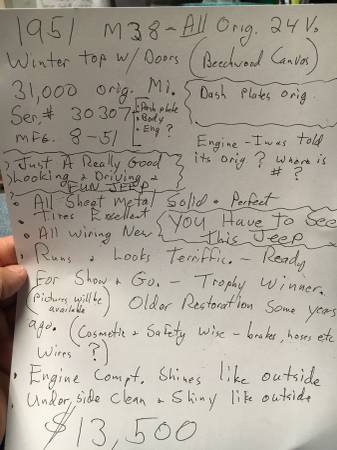 1951 M38 - All Orig. 24 V.
Winter top w/ Doors (Beechwood Canvas)
31,000 orig. Mi.
Dash Plates orig.
Ser. # 30307
• Dash plate
• Body
• Eng ?
MFG. 8-51
Engine - I was told
its orig. ? Where is
# ?
Just A Really Good
Looking & Driving &
FUN JEEP
• All Sheet Metal Solid & Perfect
• Tires Excellent
• All Wiring New
You Have to See
This Jeep
• Runs & Looks Terriffic. - Ready
For Show & Go. - Trophy Winner.
(Pictures will be
available)
Older Restoration Some years
ago. (Cosmetic & Safety Wise - brakes, hoses etc
Wires ?)
• Engine Compt. Shines like outside
• Under, side Clean & Shiny like outside
$13,500